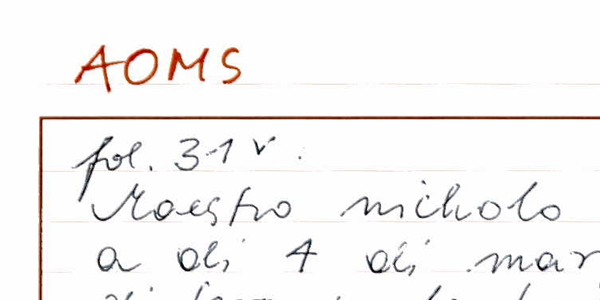 AOMS
fol. 31 v.
Maestro nicholo
a di 4 di mar